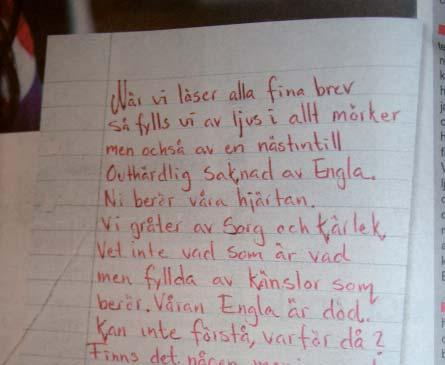 När vi läser alla fina brev
så fylls vi av ljus i allt mörker
men ochså av en nästintill
Outhärdlig saknad av Engla.
Ni berör våra hjärtan.
Vi gråter av Sorg och kärlek,
Vet inte vad som är vad
men fyllda av känslor som
berör. Våran Engla är död.
Kan inte förstå, varför då?
Finns det någon